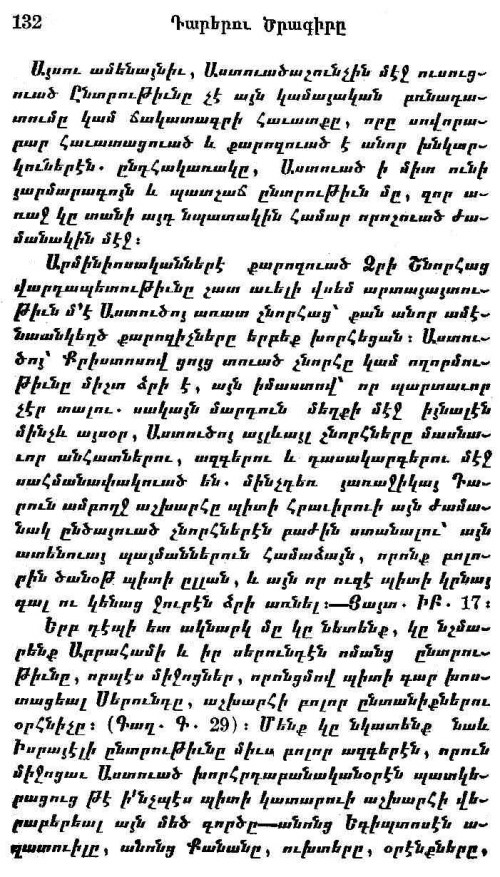 132 Դարերու Ծրագիրը
Այսու ամենայնիւ, Աստուածաշունչին մէջ ուսուց-
ուած Ընտրութիւնը չէ այն կամայական բռնադա-
տումը կամ ճակատագրի հաւատքը, որը սովորա-
բար հաւատացուած և քարոզուած է անոր խնկար-
կուներէն. ընդհակառակը, Աստուած ի միտ ունի
յարմարագոյն և պատշաճ ընտրութիւն մը, զոր ա-
ռաջ կը տանի այդ նպատակին համար որոշուած ժա-
մանակին մէջ։
Արմինիոսականներէ քարոզուած Ձրի Շնորհաց
վարդապետութիւնը շատ աւելի վսեմ արտայայտու-
թիւն մ՚է Աստուծոյ առատ շնորհաց՝ քան անոր ամէ-
նաանկեղծ քարոզիչները երբեք խորհեցան։ Աստու-
ծոյ՝ Քրիստոսով ցոյց տուած շնորհը կամ ողորմու-
թիւնը միշտ ձրի է, այն իմաստով՝ որ պարտաւոր
չէր տալու. սակայն մարդուն մեղքի մէջ իյնալէն
մինչև այսօր, Աստուծոյ այլևայլ շնորհները մասնա-
ւոր անհատներու, ազգերու և դասակարգերու մէջ
սահմանափակուած են. մինչդեռ յառաջիկայ Դա-
րուն ամբողջ աշխարհը պիտի հրաւիրուի այն ժամա-
նակ ընծայուած շնորհներէն բաժին ստանալու՝ այն
ատենուայ պայմաններուն համաձայն, որոնք բոլո-
րին ծանօթ պիտի ըլլան, և այն որ ուզէ պիտի կրնայ
գալ ու կենաց ջուրէն ձրի առնել։—Յայտ. ԻԲ. 17։
Երբ դէպի ետ ակնարկ մը կը նետենք, կը նշմա-
րենք Աբրահամի և իր սերունդէն ոմանց ընտրու-
թիւնը, որպէս միջոցներ, որոնցմով պիտի գար խոս-
տացեալ Սերունդը, աշխարհի բոլոր ընտանիքներու
օրհնիչը։ (Գաղ. Գ. 29)։ Մենք կը նկատենք նաև
Իսրայէլի ընտրութիւնը միւս բոլոր ազգերէն, որուն
միջոցաւ Աստուած խորհրդաբանականօրէն պատկե-
րացուց թէ ի՛նչպէս պիտի կատարուի աշխարհի վե-
րաբերեալ այն մեծ գործը—անոնց Եգիպտոսէն ա-
զատուիլը, անոնց Քանանը, ուխտերը, օրէնքները,